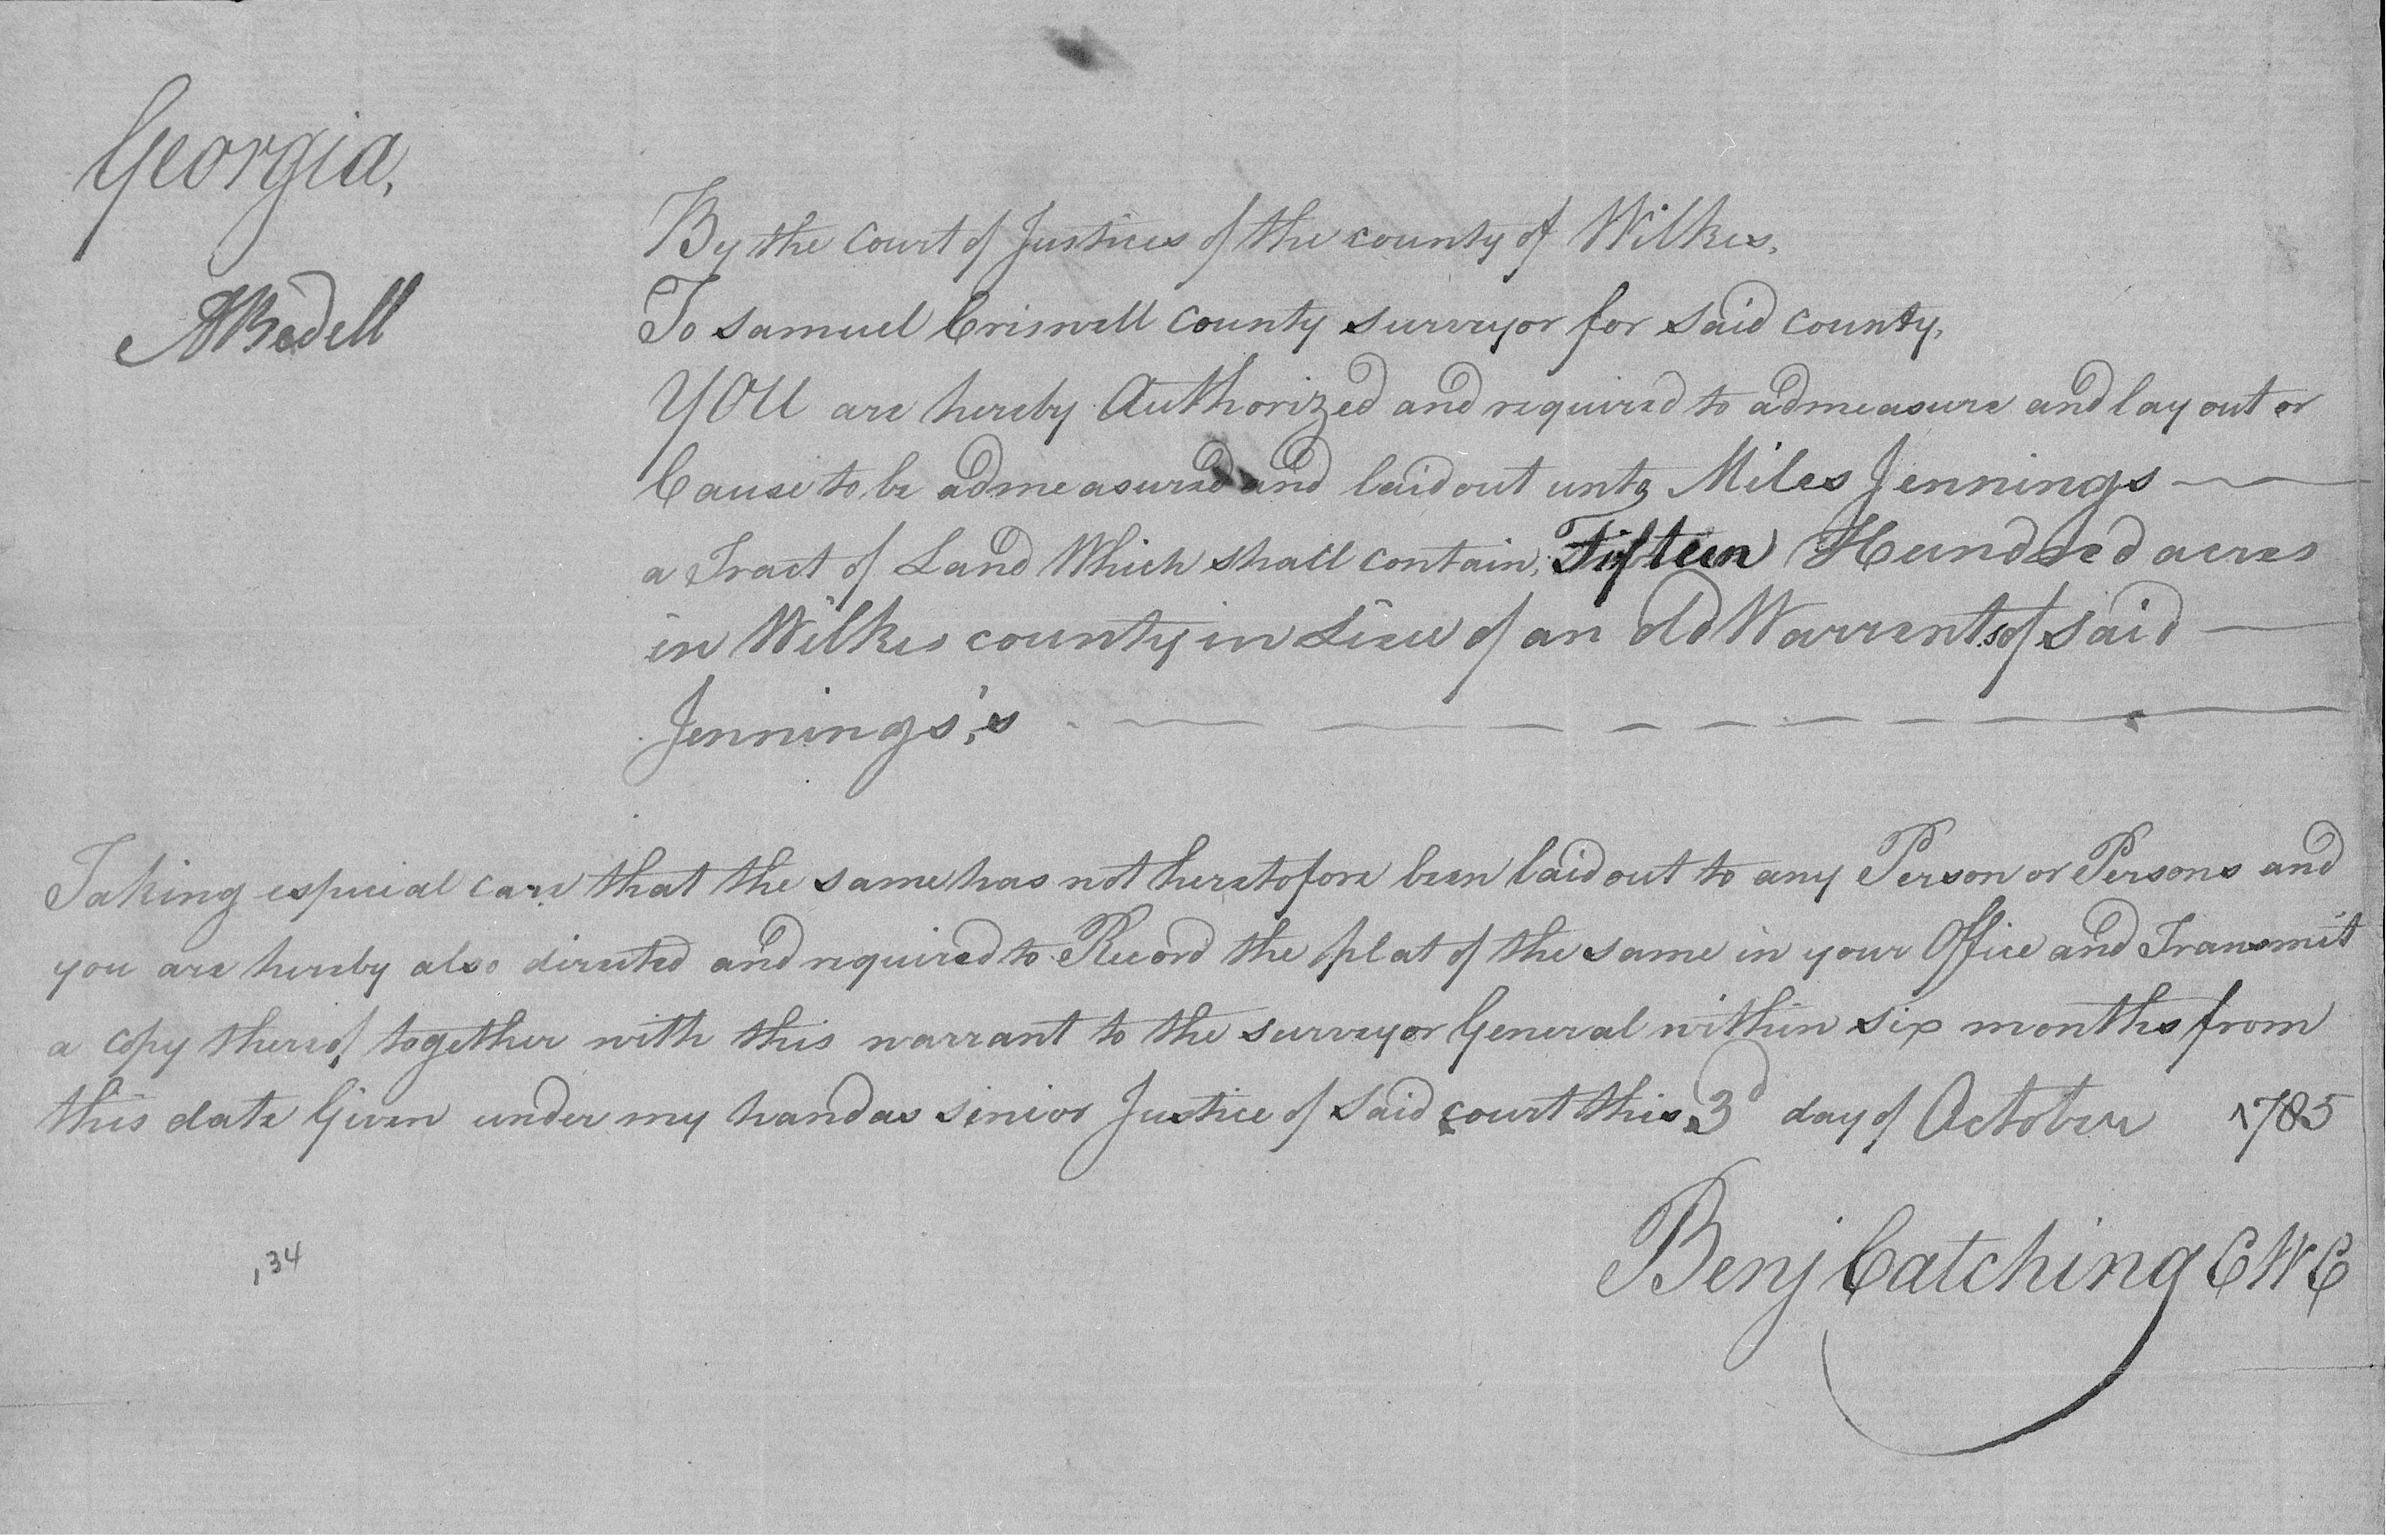 Georgia,
By the Court of Justices of the county of Wilkes,
ABedell
To Samuel Criswell County surveyor for said County,
YOU are hereby Authorized and required to admeasure and lay out or
Cause to be admeasured and laid out unto Miles Jennings
a Tract of Land Which shall contain, Fifteen Hundred acres
in Wilkes county in Lieu of an old Warrents of said
Jennings's
Taking especial care that the same has not heretofore been laid out to any Person or Persons and
you are hereby also directed and required to Record the plat of the same in your Office and Transmit
a copy thereof, together with this warrant to the surveyor General within six months from
this date Given under my hand as sinior Justice of said court this 3d day of October 1785
Benj Catching CWC
,34